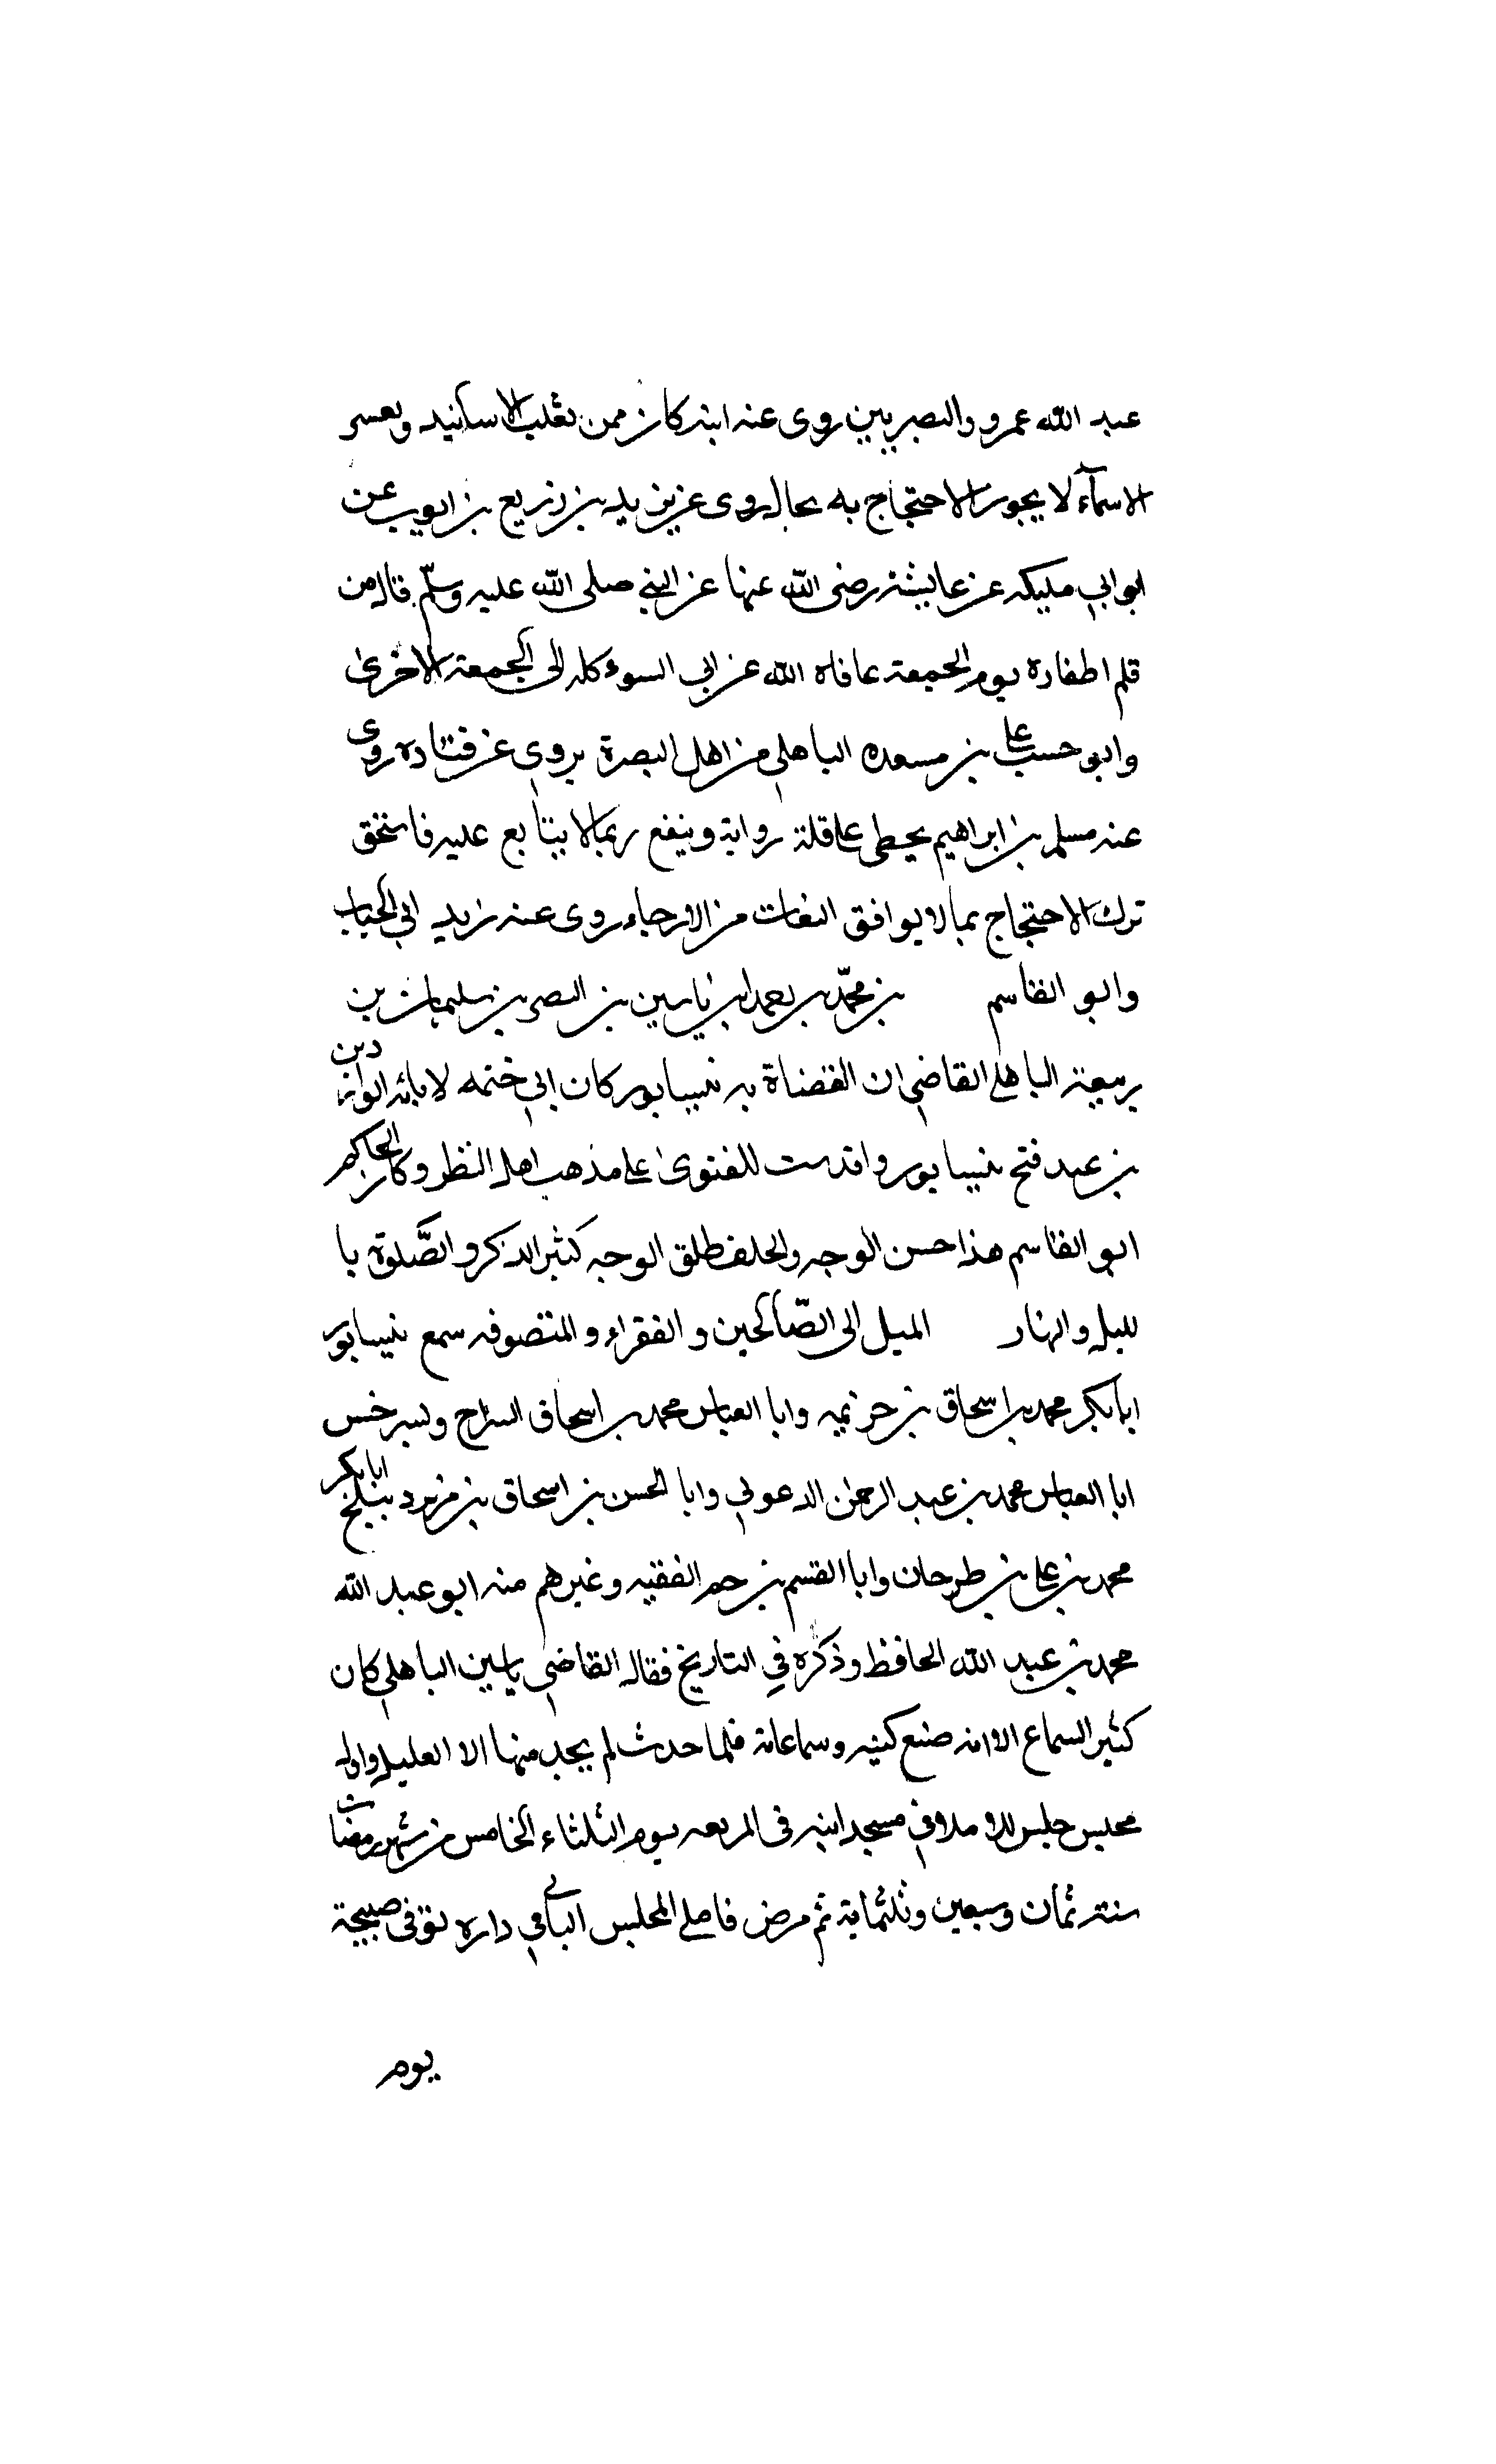 عبد الله عمرو والبصريين روى عنه ابنه كان ممن تقلب الاسانيد ويعسر
الاسمآء لا يجوز الاحتجاج به بحال روى عن يزيد بن زريع بن ايوب عن
ابو ابي مليكه عن عايشة رضى الله عنها عن النبي صلى الله عليه وسلّم قال من
قلم اظفاره يوم الجمعة عافاه الله عز ابى السوء كله الى الجمعة الاخرى
وابو حسب على بن مسعده الباهلي من اهل البصرة يروي عن قتاده روى
عنه مسلم بن ابراهيم يخطى على قلة رواية وينفع ربما لا يتابع عليه فاستحق
ترك الاحتجاج بما لا يوافق الثقات من الارجاء روى عنه زايد ابي الحباب
وابو القاسم بن محمّد بن ياسين بن النصر بن سليمان بن
ربيعة الباهلي القاضي ان القضاة بنيسابور كان ابي ختمه لابائه الواردين
بن عهد فتح نيسابور واقدمت للفتوى على مذهب اهل النظر وكان الحاكم
ابو القاسم هذا حسن الوجه والخلف طلق الوجه كثير الذكر والصّلوة با
لليل والنهار الميل الى الصّالحين والفقراء والمتصوفه سمع نيسابور
ابا بكر محمد بن اسحاق بن خزيمه وابا العباس محمد بن اسحاق السراج وبسرخس
ابا العباس محمد بن عبد الرحمن الدعولي وابا الحسن بن اسحاق بن مزيرد ببلخ ابا بكر
محمد بن علي بن طرحان وابا القسم بن حم الفقيه وغيرهم منه ابو عبد الله
محمد بن عبد الله الحافظ وذكره في التاريخ فقال القاضي ياسين الباهلي كان
كثير السماع الا انه ضيع كتبه وسماعاته فلما حدث لم يجد منها الا القليل واول
مجلس جلس للاملا في مسجد ابيه في المربعه يوم الثلثاء الخامس من شهر رمضان
سنة ثمان وسبعين وثلثماية ثم مرض فاملى المجلس الثاني في داره توفى صبيحة
يوم